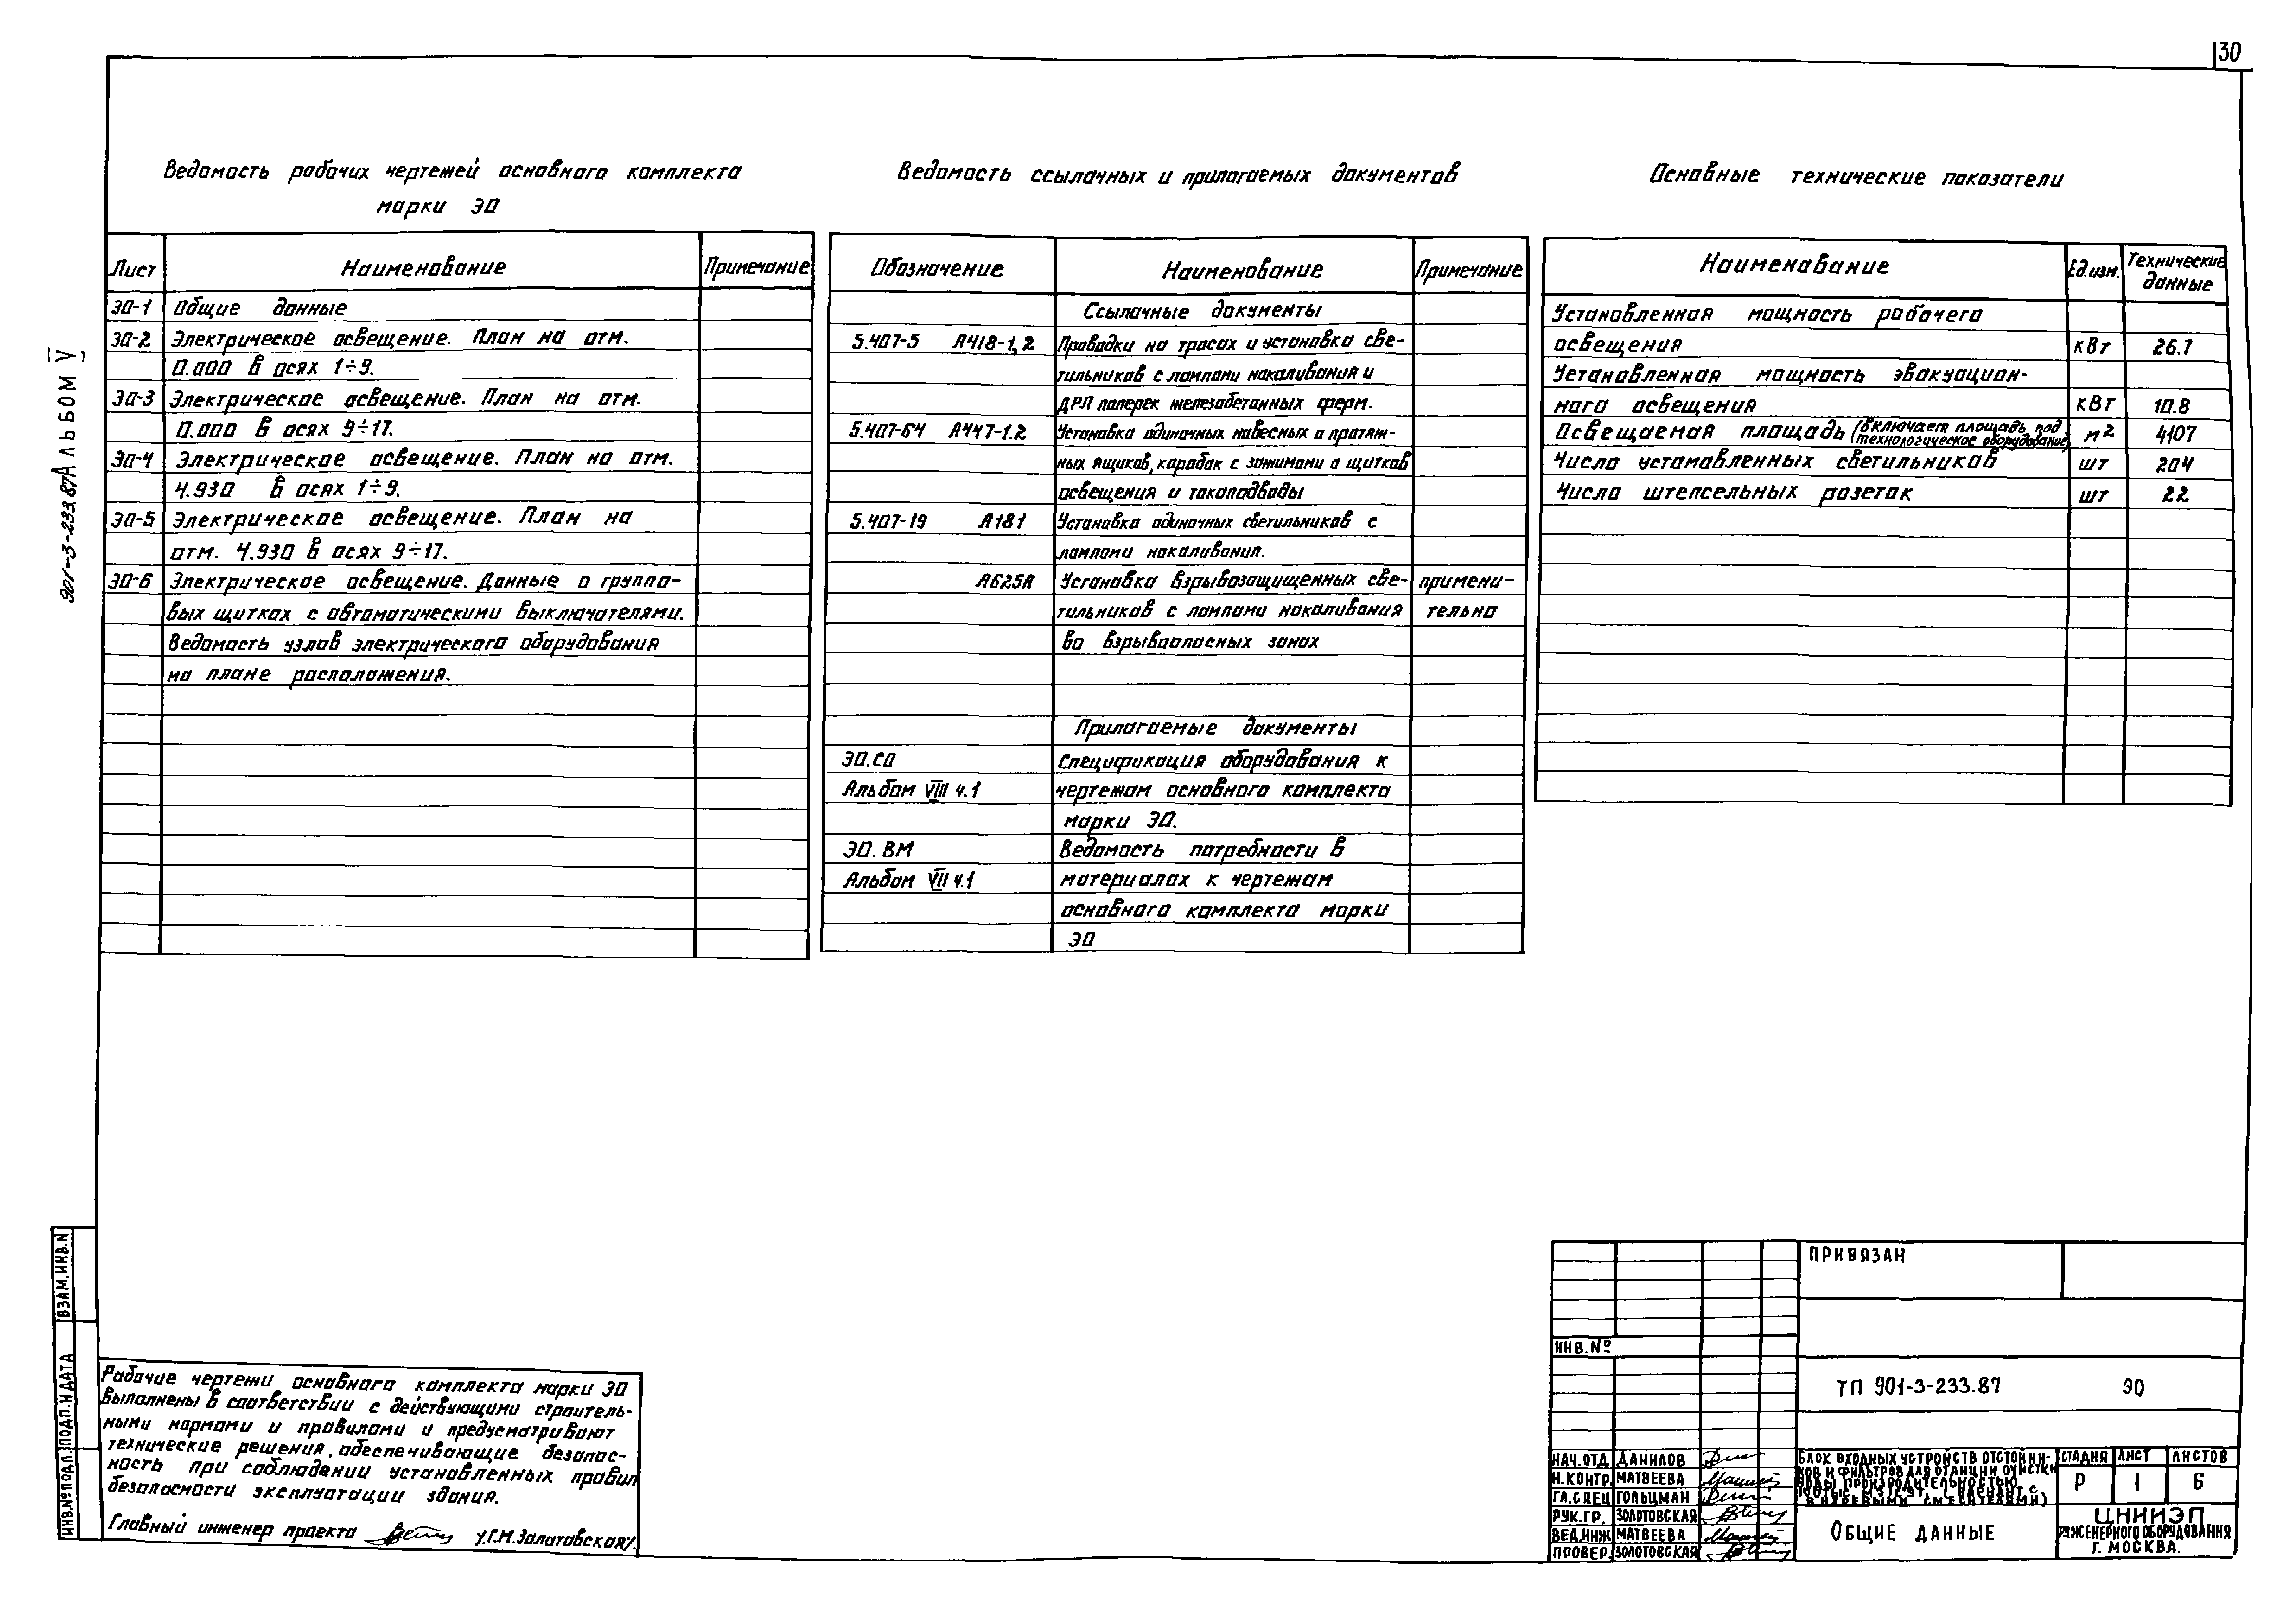 30
Ведомость рабочих чертежей основного комплекта
марки ЭО
Лист Наименование Примечание
ЭО-1 Общие данные
ЭО-2 Электрическое освещение. План на отм.
0.000 в осях 1÷9.
ЭО-3 Электрическое освещение. План на отм.
0.000 в осях 9÷17.
ЭО-4 Электрическое освещение. План на отм.
4.930 в осях 1÷9.
ЭО-5 Электрическое освещение. План на
отм. 4.930 в осях 9÷17.
ЭО-6 Электрическое освещение. Данные о группо-
вых щитках с автоматическими выключателями.
Ведомость узлов электрического оборудования
на плане расположения.
Ведомость ссылочных и прилагаемых документов
Обозначение Наименование Примечание
Ссылочные документы
5.407-5 А418-1,2 Проводки на тросах и установка све-
тильников с лампами накаливания и
ДРЛ поперек железобетонных ферм.
5.407-64 А447-1.2 Установка одиночных навесных и протяж-
ных ящиков, коробок с зажимами о щитков
освещения и токоподводы
5.407-19 А181 Установка одиночных светильников с
лампами накаливания.
А625А Установка взрывозащищенных све- примени-
тильников с лампами накаливания тельно
во взрывоопасных зонах
Прилагаемые документы
ЭО.СО Спецификация оборудования к
Альбом VIII ч.1 чертежам основного комплекта
марки ЭО.
ЭО.ВМ Ведомость потребности в
Альбом VII ч.1 материалах к чертежам
основного комплекта марки
ЭО
Основные технические показатели
Наименование Ед.изм. Технические
данные
Установленная мощность рабочего
освещения кВт 26.7
Установленная мощность эвакуацион-
ного освещения кВт 10.8
Освещаемая площадь (включает площадь под
технологическое оборудование) м2 4107
Число установленных светильников шт 204
Число штепсельных розеток шт 22
901-3-233.87 АЛЬБОМ V
ВЗАМ.ИНВ.N
ПОДП.И ДАТА
ИНВ.№ПОДЛ.
Рабочие чертежи основного комплекта марки ЭО
выполнены в соответствии с действующими строитель-
ными нормами и правилами и предусматривают
технические решения, обеспечивающие безопас-
ность при соблюдении установленных правил
безопасности эксплуатации здания.
Главный инженер проекта /Г.М.Золотовская/.
ПРИВЯЗАН
ИНВ.№
ТП 901-3-233.87 ЭО
НАЧ.ОТД ДАНИЛОВ
Н.КОНТР. МАТВЕЕВА
ГЛ.СПЕЦ ГОЛЬЦМАН
РУК.ГР. ЗОЛОТОВСКАЯ
ВЕД.ИНЖ МАТВЕЕВА
ПРОВЕР. ЗОЛОТОВСКАЯ
БЛОК ВХОДНЫХ УСТРОЙСТВ ОТСТОЙНИ-
КОВ И ФИЛЬТРОВ ДЛЯ СТАНЦИИ ОЧИСТКИ
ВОДЫ ПРОИЗВОДИТЕЛЬНОСТЬЮ
ТЫС. М3/СУТ. (ВАРИАНТ С
ВИХРЕВЫМИ СМЕСИТЕЛЯМИ)
СТАДИЯ ЛИСТ ЛИСТОВ
Р 1 6
ОБЩИЕ ДАННЫЕ
ЦНИИЭП
ИНЖЕНЕРНОГО ОБОРУДОВАНИЯ
Г. МОСКВА.